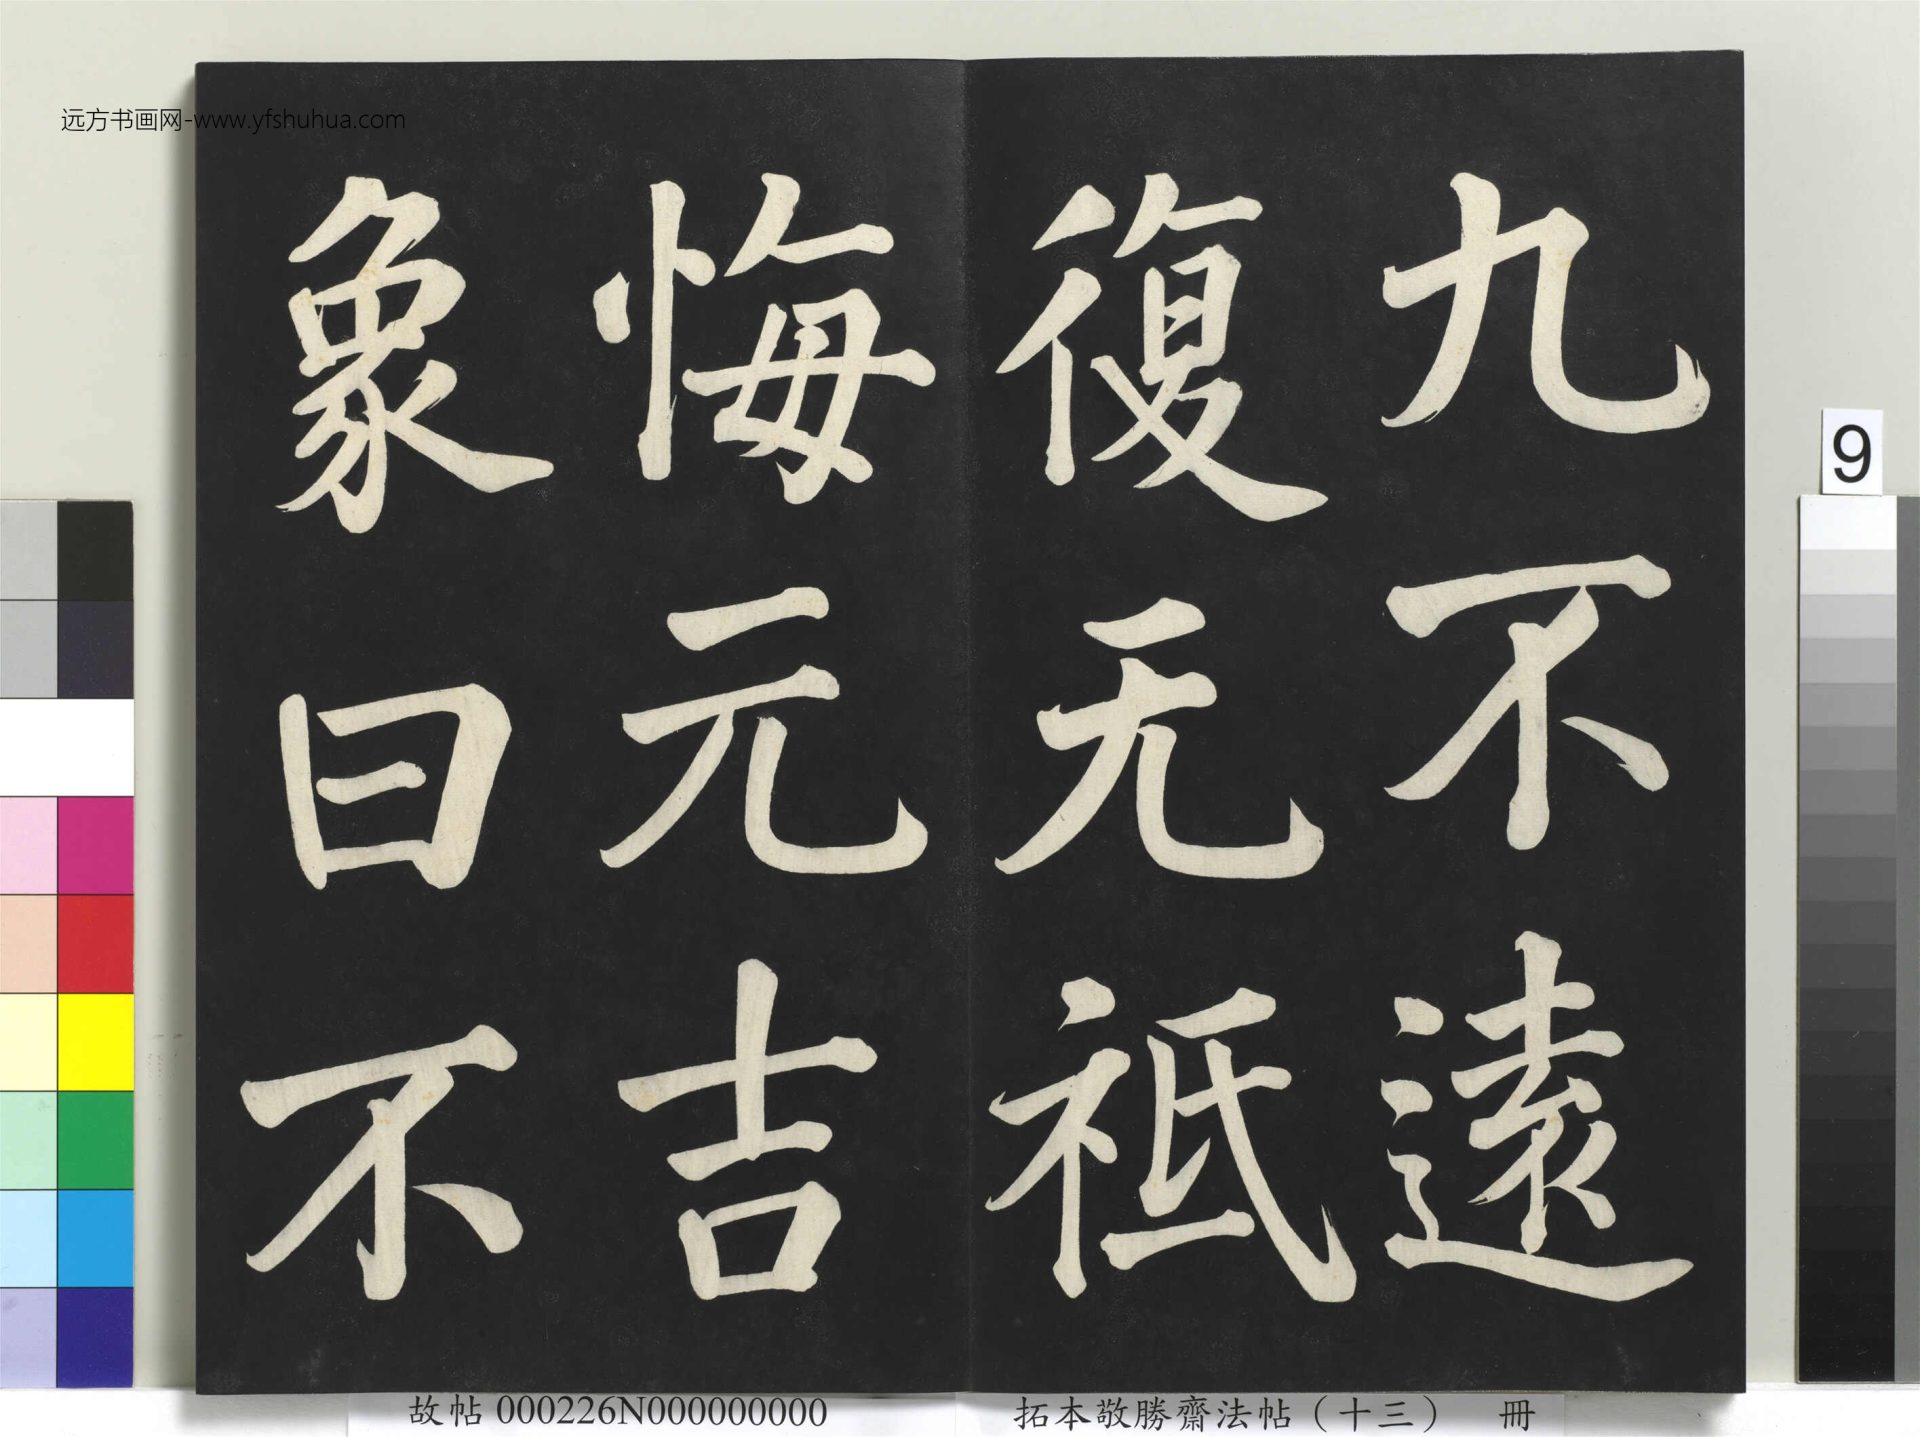 远方书画网-www.yfshuhua.com
九不遠
復无祇
悔元吉
象曰不
9
故帖 000226N000000000
拓本敬勝齋法帖（十三） 冊